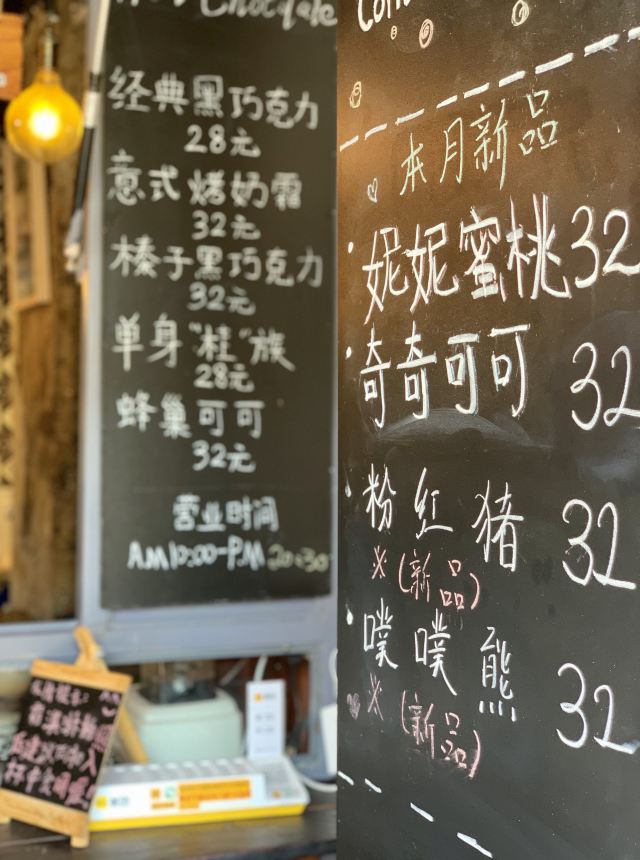 Hot Chocolate
经典黑巧克力
28元
意式烤奶霜
32元
榛子黑巧克力
32元
单身"桂"族
28元
蜂巢可可
32元
营业时间
AM10:00-P.M20:30
本月新品
妮妮蜜桃 32
奇奇可可 32
粉红猪 32
※(新品)
噗噗熊 32
※(新品)